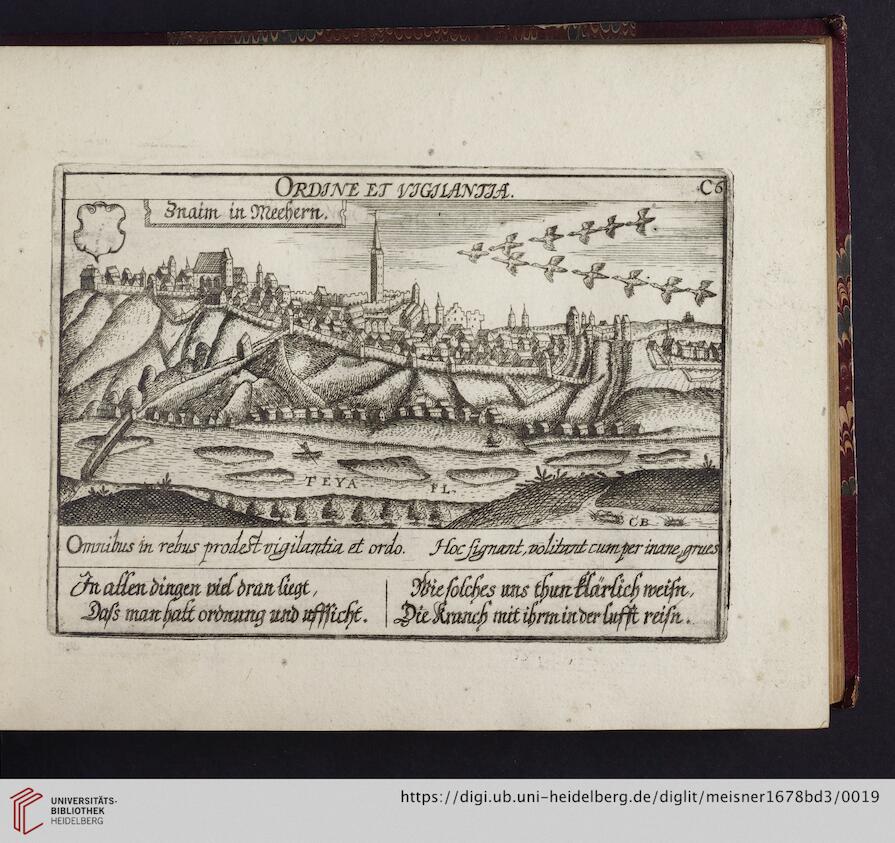 ORDINE ET VIGILANTIA.
C6
Znaim in Meehern.
TEYA FL.
CB
Omnibus in rebus prodest vigilantia et ordo. Hoc signant, volitant cum per inane, grues
In allen dingen viel dran liegt,
Dass man halt ordnung und uffsicht.
Wie solches uns thun klärlich weisn,
Die Kranch mit ihrm in der lufft reisn.
UNIVERSITÄTS-
BIBLIOTHEK
HEIDELBERG
https://digi.ub.uni-heidelberg.de/diglit/meisner1678bd3/0019